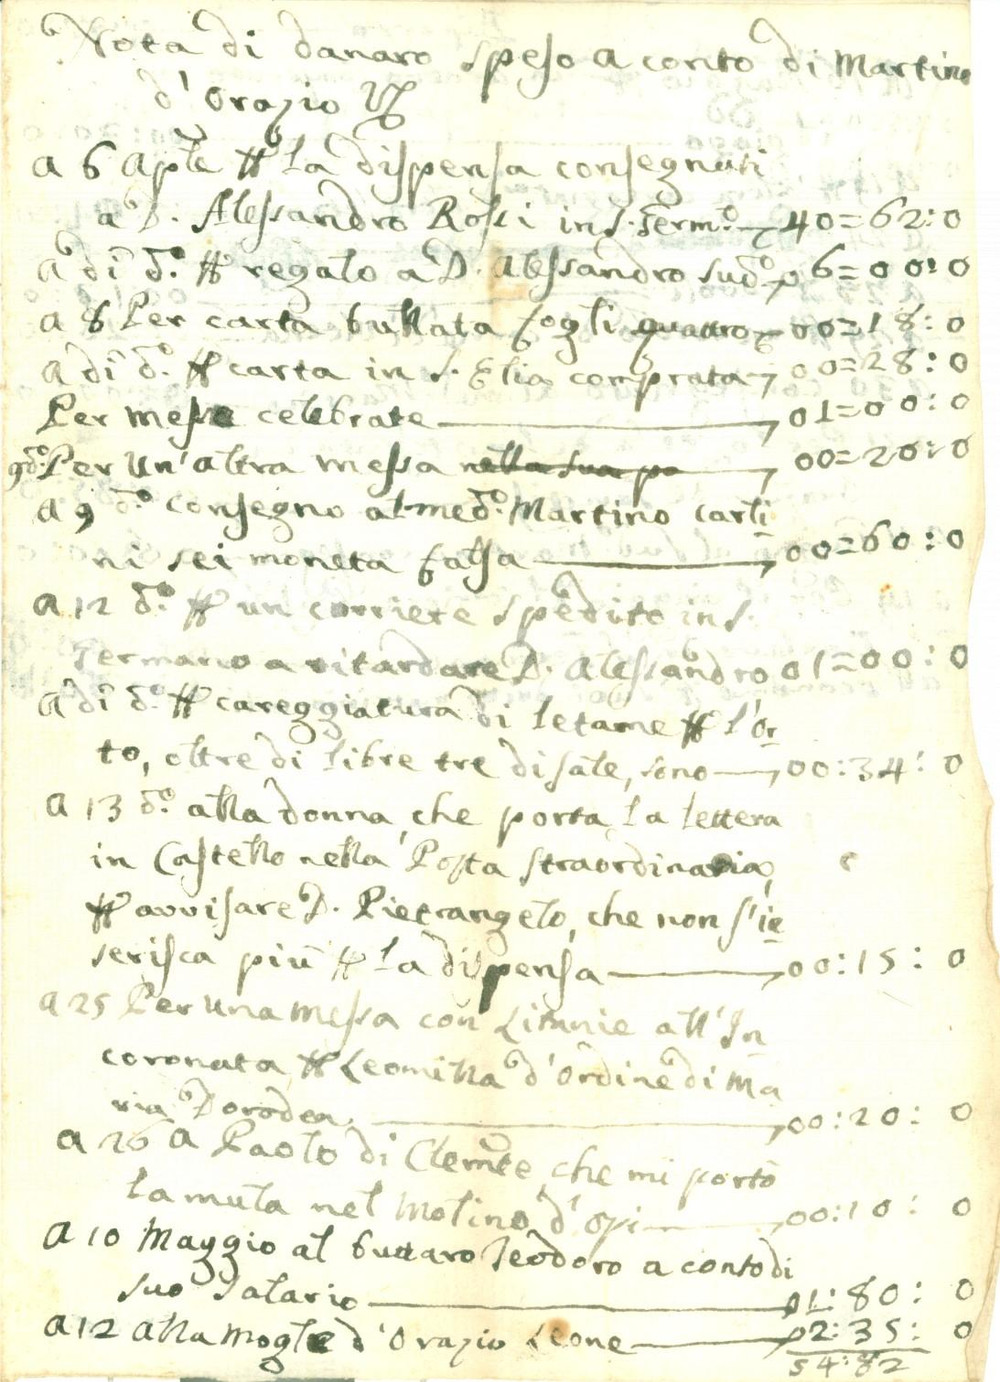 Nota di danaro speso a conto di Martino
d'Orazio
a 6 Aple # la dispensa consegnati
a D. Alessandro Rossi in S. Germ.o 40=62:0
a dì d.o # regalo a D. Alessandro sud.o 6=00:0
a 8 Per carta bullata fogli quattro 00=18:0
a dì d.o # carta in S. Elia comprata 00=28:0
Per messe celebrate 01=00:0
9 d.o Per un'altra messa nella sua 00=20:0
a 9 d.o consegno al med.o Martino carli
ni sei moneta falsa 00=60:0
a 12 d.o # un corriere spedito in S.
Germano a ritardare D. Alessandro 01=00:0
a dì d.o # careggiatura di letame # l'or
to, oltre di libre tre di sale, sono 00:34:0
a 13 d.o alla donna, che porta la lettera
in Castello nella Posta straordinaria,
# avvisare D. Pietrangelo, che non s'ie
serisca più # la dispensa 00:15:0
a 25 Per una messa con Limnie all'In
coronata # Leomilla d'ordine di Ma
ria Dorodea 00:20:0
a 26 a Paolo di Clemente, che mi portò
la mula nel Molino d'Opi 00:10:0
a 10 Maggio al buttaro Teodoro a conto di
suo salario 01:80:0
a 12 alla Mogle d'Orazio Leone 02:35:0
54:82